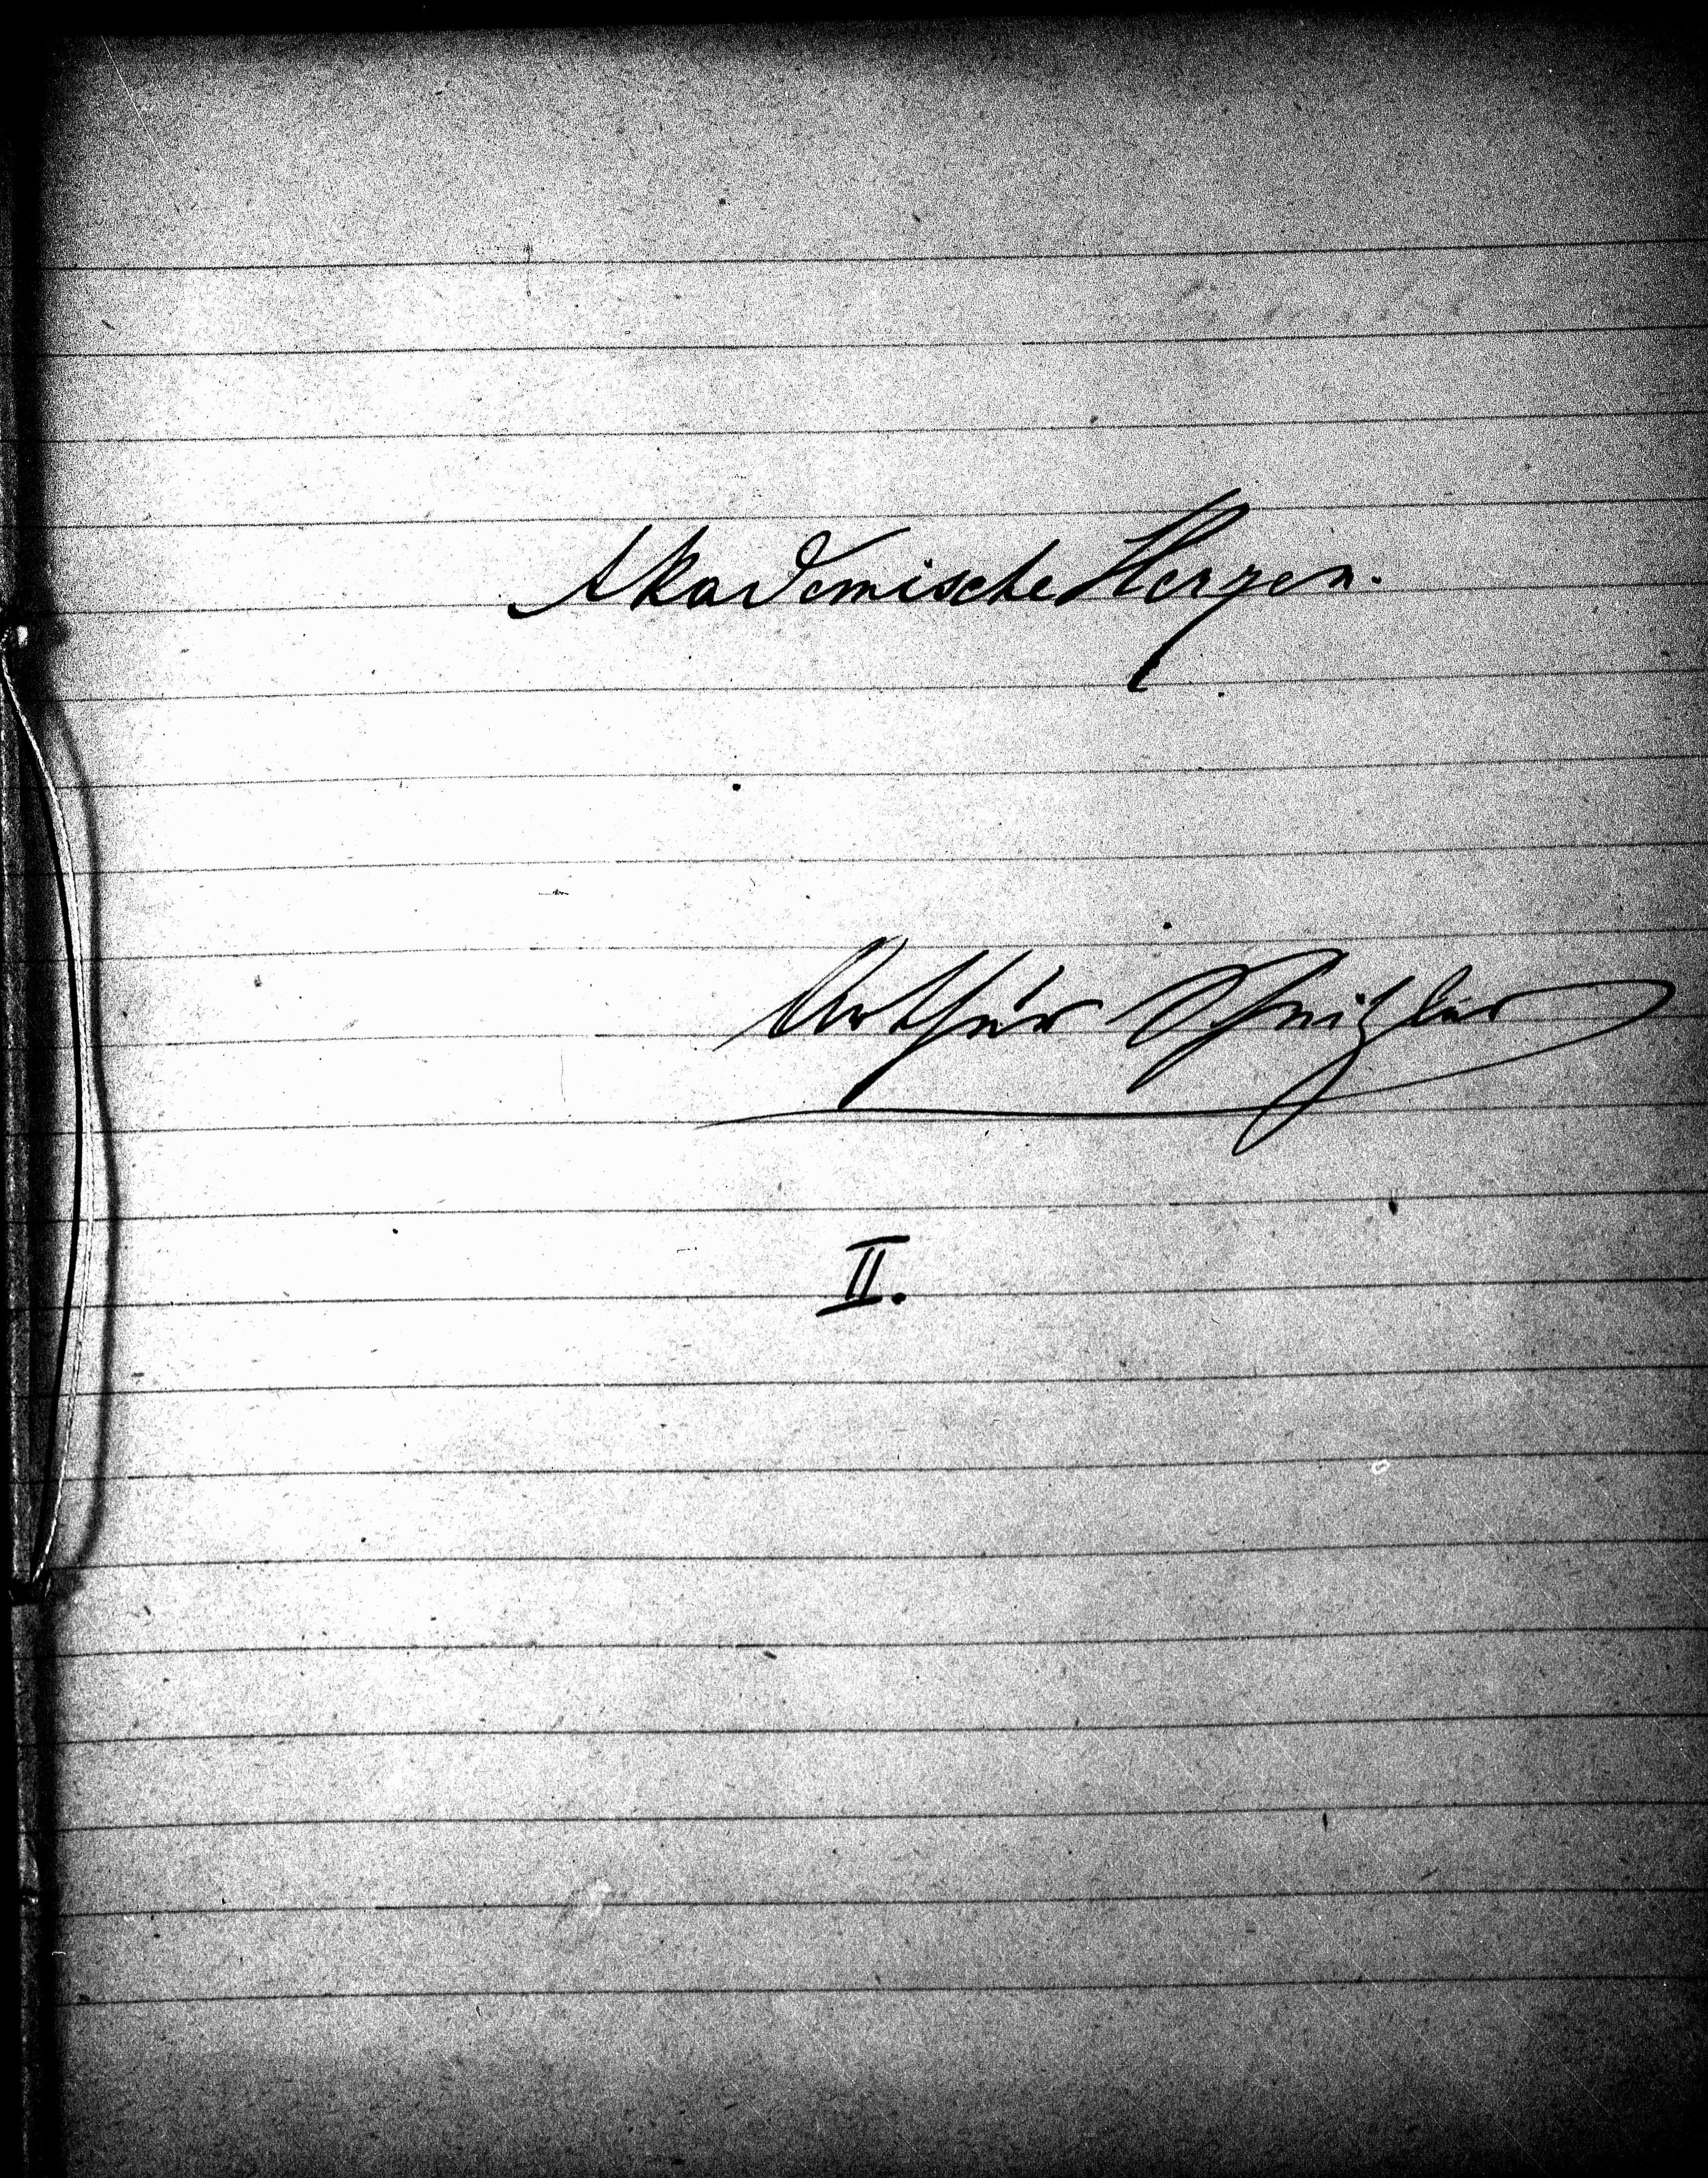 Akademische Herzen.
Arthur Schnitzler
II.